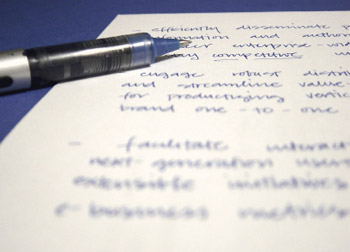 efficiently disseminate
and
enterprise-
competitive
engage robust
and streamline value-
for productizing
brand one-to-one
- facilitate
next-generation
extensible initiatives
e-business metrics